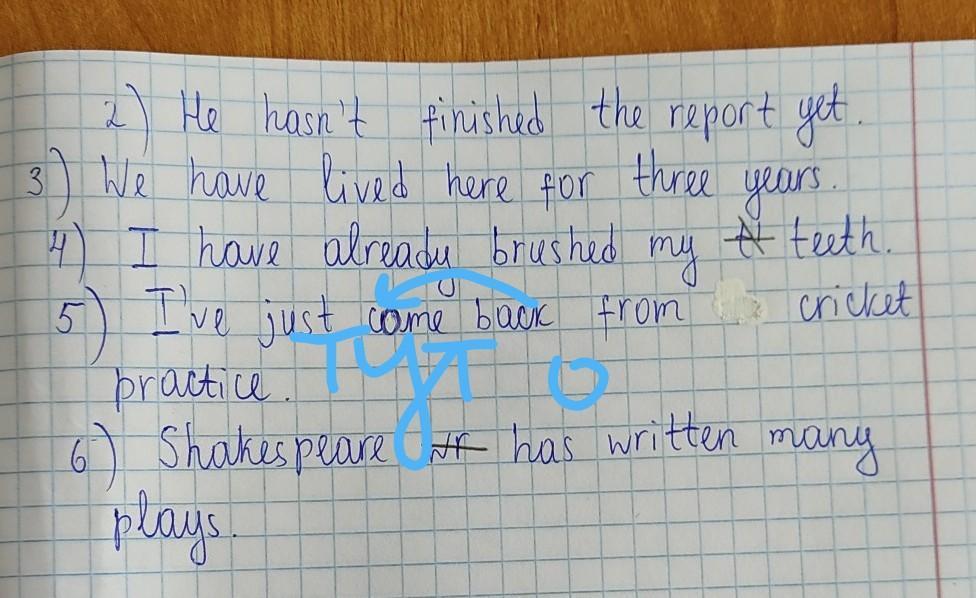 2) He hasn't finished the report yet.
3) We have lived here for three years.
4) I have already brushed my teeth.
5) I've just come back from cricket
тут о
practice.
6) Shakespeare has written many
plays.